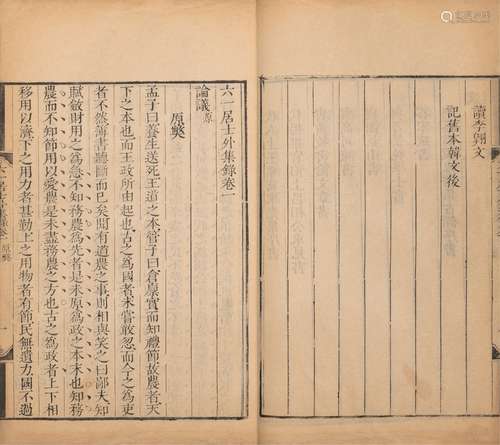 讀李翱文
記舊本韓文後
六一居士外集錄卷一
論議 原
原獘
孟子曰養生送死王道之本管子曰倉廩實而知禮節故農者天
下之本也而王政所由起也古之爲國者未嘗敢忽而今之爲吏
者不然簿書聽斷而已矣聞有道農之事則相與笑之曰鄙夫知
賦斂財用之爲急不知務農爲先者是未原爲政之本末也知務
農而不知節用以愛農是未盡務農之方也古之爲政者上下相
移用以濟下之用力者甚勤上之用物者有節民無遺力國不過
原獘 一